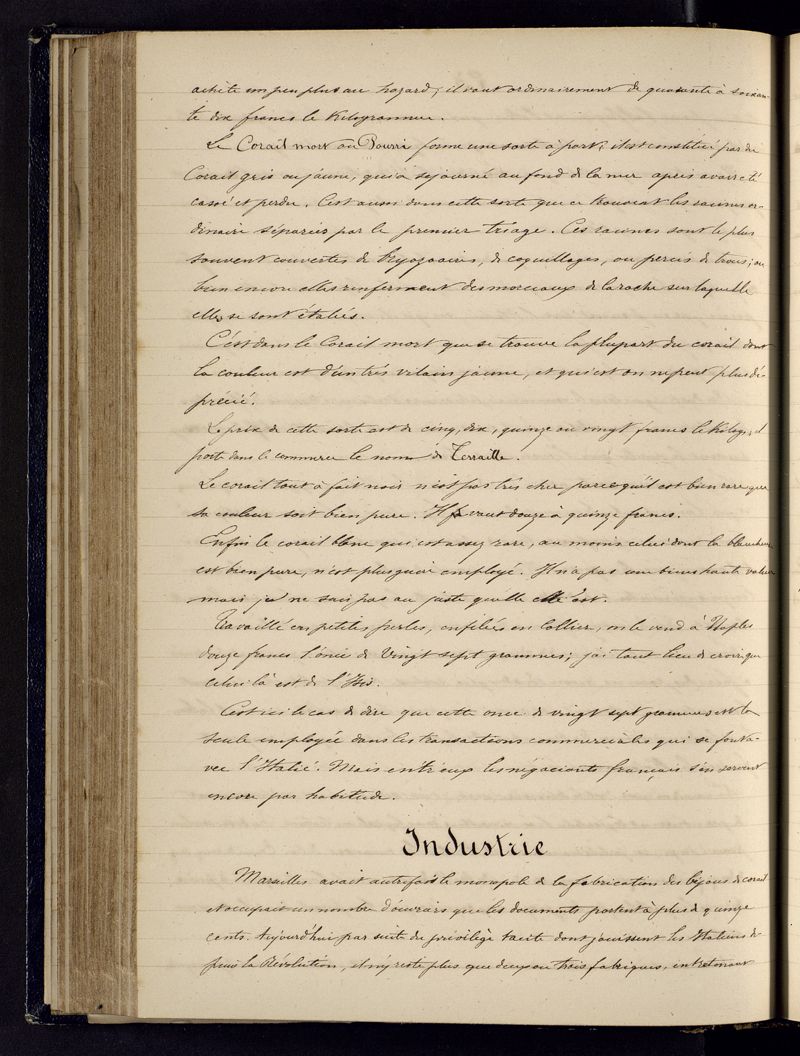 achète un peu plus au hazard; il vaut ordinairement de quarante à soixan-
te dix francs le Kilogramme.
Le Corail mort ou Pourri forme une sorte à part; il est constitué par du
Corail gris ou jaune, qui a séjourné au fond de la mer après avoir été
cassé et perdu. C'est aussi dans cette sorte que se trouvent les racines or-
dinaire séparées par le premier triage. Ces racines sont le plus
souvent couvertes de bryozoaires, de coquillages, ou percés de trous; ou
bien encore elles renferment des morceaux de la roche sur laquelle
elles se sont étalés.
C'est dans le Corail mort que se trouve la plupart du corail dont
la couleur est d'un très vilain jaune, et qui est on ne peut plus dé-
précié.
Le prix de cette sorte est de cinq, dix, quinze ou vingt francs le Kilog, il
porte dans le commerce le nom de Terraille.
Le corail tout à fait noir n'est pas très cher parce qu'il est bien rare que
sa couleur soit bien pure. Il vaut douze à quinze francs.
Enfin le corail blanc qui est assez rare, au moins celui dont la blancheur
est bien pure, n'est plus guère employé. Il n'a pas une bien haute valeur
mais je ne sais pas au juste quelle elle est.
Travaillé en petites perles, enfilées en collier, on le vend à Naples
douze francs l'once de vingt sept grammes; j'ai tout lieu de croire que
celui là est de l'Isis.
C'est ici le cas de dire que cette once de vingt sept grammes est la
seule employée dans les transactions commerciales qui se font a-
vec l'Italie. Mais entr'eux les négociants français s'en servent
encore par habitude.
Industrie
Marseilles avait autrefois le monopole de la fabrication des bijoux de corail
et occupait un nombre d'ouvriers que les documents portent à plus de quinze
cents. Aujourd'hui par suite du privilège tacite dont jouissent les Italiens de-
puis la Révolution, il n'y reste plus que deux ou trois fabriques, entretenant